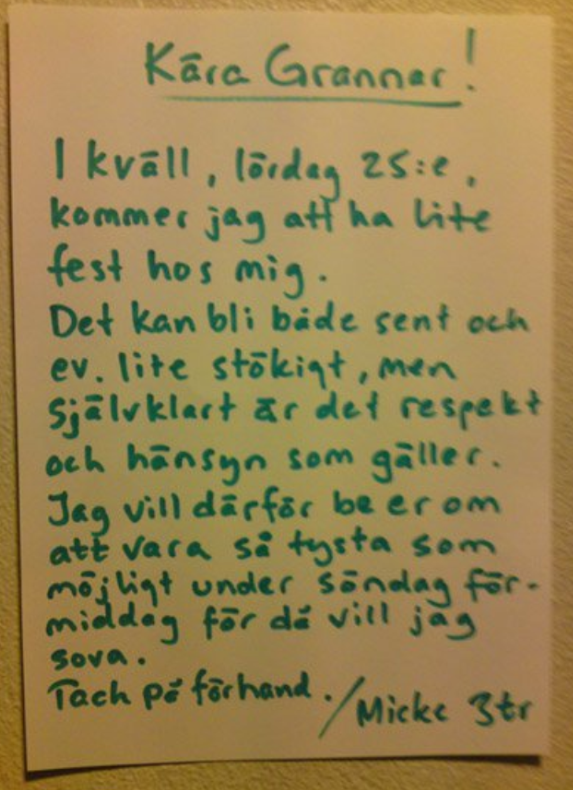 Kära Grannar!
I kväll, lördag 25:e,
kommer jag att ha lite
fest hos mig.
Det kan bli både sent och
ev. lite stökigt, men
självklart är det respekt
och hänsyn som gäller.
Jag vill därför be er om
att vara så tysta som
möjligt under söndag för-
middag för då vill jag
sova.
Tach på förhand. /Micke 3tr